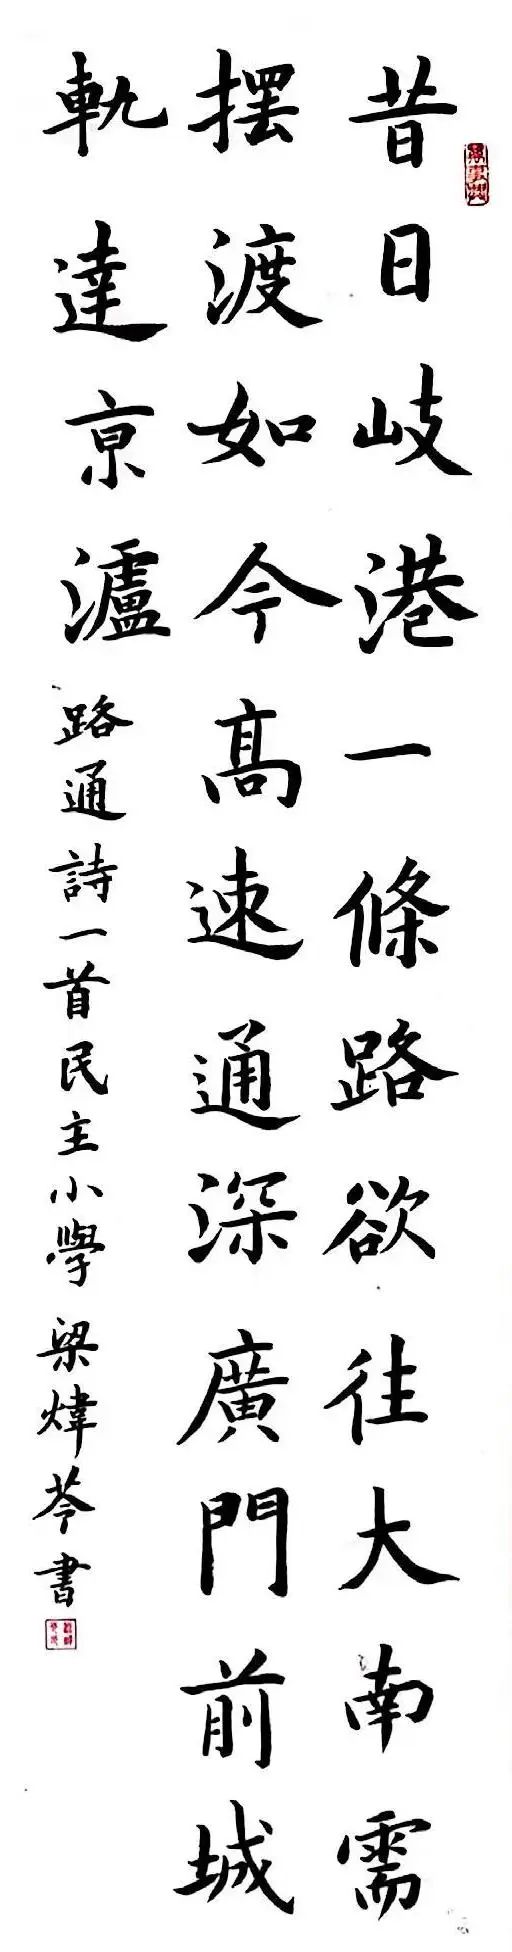 昔日岐港一條路欲往大南需
摆渡如今髙速通深廣門前城
軌達京瀘
路通詩一首民主小學梁煒芩書